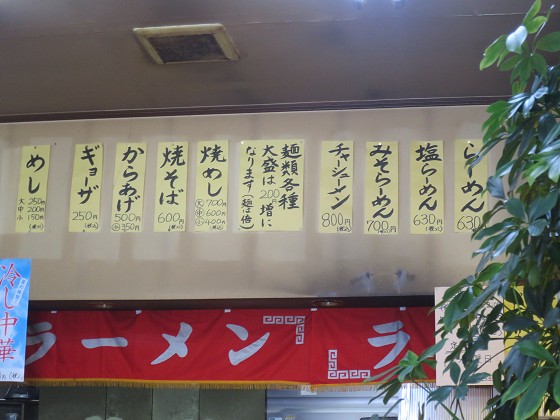 らーめん
630円
(税込)
塩らーめん
630円
(税込)
みそらーめん
700円
(税込)
チャーシューメン
800円
(税込)
麺類各種
大盛は200円増に
なります(麺は倍)
焼めし
大700円
中600円
小400円
(税込)
焼そば
600円
(税込)
からあげ
500円
小350円
ギョーザ
250円
(税込)
めし
大 250円
中 200円
小 150円
(税込)
冷し中華
ラーメン
ラ